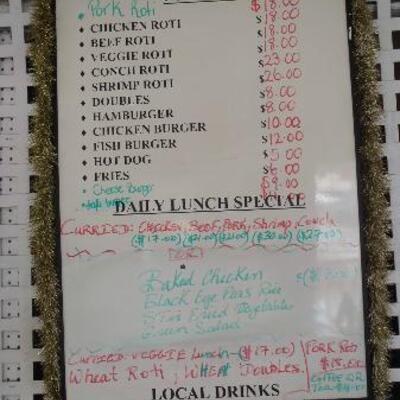 • Pork Roti $18.00
• CHICKEN ROTI $18.00
• BEEF ROTI $18.00
• VEGGIE ROTI $18.00
• CONCH ROTI $23.00
• SHRIMP ROTI $26.00
• DOUBLES $8.00
• HAMBURGER $8.00
• CHICKEN BURGER $10.00
• FISH BURGER $12.00
• HOT DOG $5.00
• FRIES $6.00
• Cheese Burger $9.00
DAILY LUNCH SPECIAL
CURRIED: CHICKEN, BEEF, PORK, Shrimp, Conch
($17.00) ($21.00) ($21.00) ($30.00) ($27.00)
Baked Chicken
Black Eye Peas Rice
Stir Fried Vegetables
Green Salad
CURRIED VEGGIE Lunch - ($17.00)
Wheat Roti; WHEAT Doubles.
PORK Roti
$18.00
COFFEE OR
TEA $4.00
LOCAL DRINKS